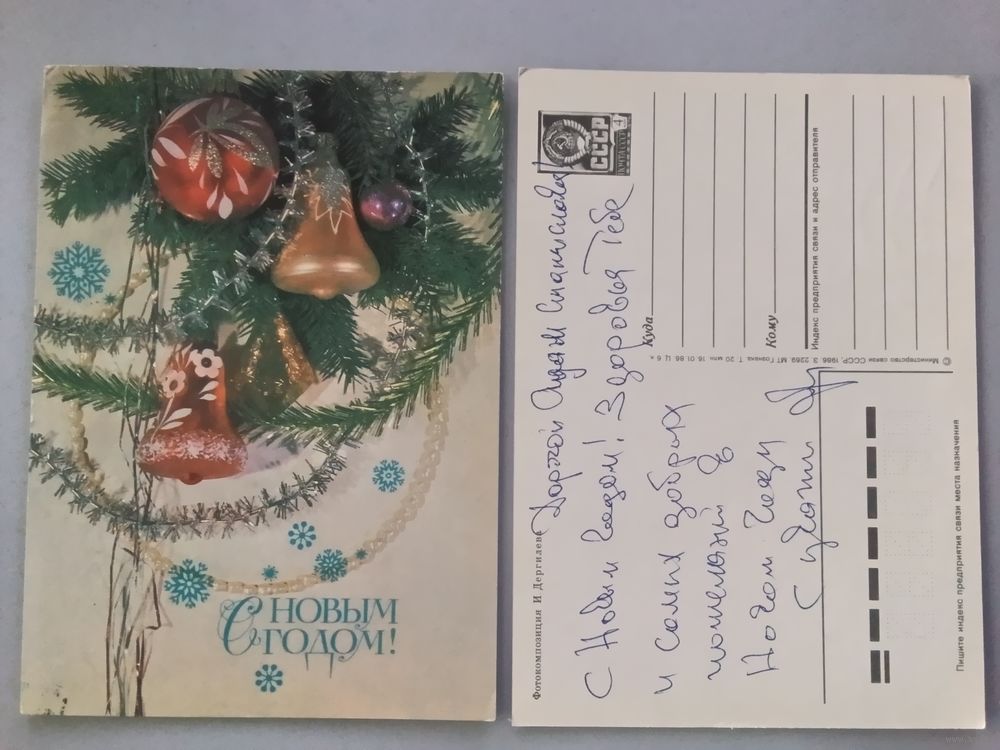 С НОВЫМ
ГОДОМ!
СССР
ПОЧТА СССР
4
Куда
Кому
Индекс предприятия связи и адрес отправителя
© Министерство связи СССР, 1986. З. 2269. МТ Гознака. Т. 20 млн. 16.01.86. Ц. 6 к.
Фотокомпозиция И Дергилева
Пишите индекс предприятия связи места назначения
Дорогой Станиславович
С Новым годом! Здоровья Тебе
и самых добрых
пожеланий в
Новом Году
С ув